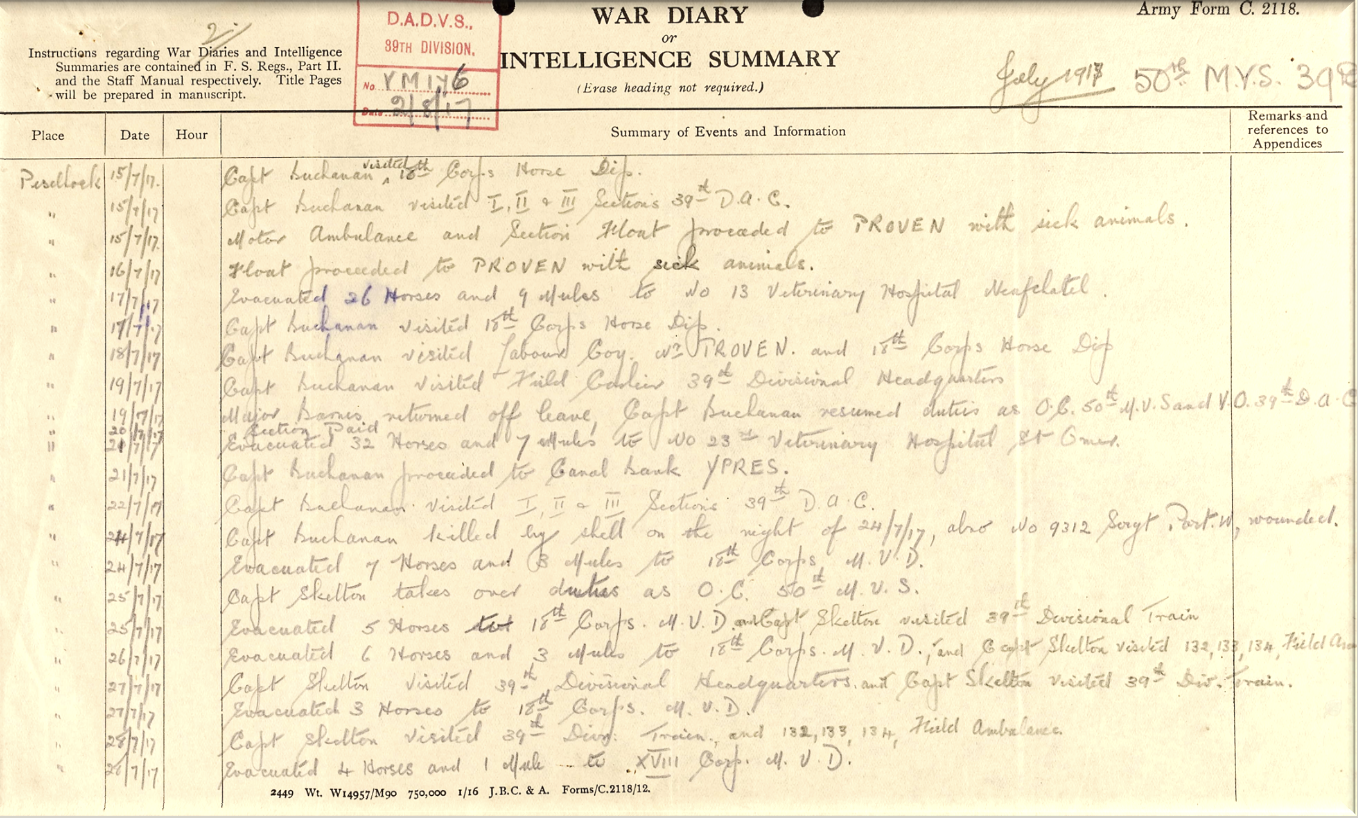 2/
D.A.D.V.S.,
39TH DIVISION.
No. VM 1476
Date 2/8/17
WAR DIARY
or
INTELLIGENCE SUMMARY
(Erase heading not required.)
Army Form C. 2118.
Instructions regarding War Diaries and Intelligence
Summaries are contained in F. S. Regs., Part II.
and the Staff Manual respectively. Title Pages
will be prepared in manuscript.
July 1917 50th M.V.S. 39
Place Date Hour Summary of Events and Information Remarks and references to Appendices
Peselhoek 15/7/17. Capt Buchanan visited 18th Corps Horse Dip.
" 15/7/17 Capt Buchanan visited I, II & III Sections 39th D.A.C.
" 15/7/17. Motor Ambulance and Section Float proceeded to PROVEN with sick animals.
" 16/7/17 Float proceeded to PROVEN with sick animals.
" 17/7/17 Evacuated 26 Horses and 9 Mules to No 13 Veterinary Hospital Neufchatel.
" 17/7/17 Capt Buchanan visited 18th Corps Horse Dip.
" 18/7/17 Capt Buchanan visited Labour Coy. Nr PROVEN. and 18th Corps Horse Dip
" 19/7/17 Capt Buchanan visited Field Cashier 39th Divisional Headquarters
" 19/7/17 Major Barnes returned off leave, Capt Buchanan resumed duties as O.C. 50th M.V.S and V.O. 39th D.A.C
" 20/7/17 Section Paid
" 21/7/17 Evacuated 32 Horses and 7 Mules to No 23rd Veterinary Hospital St Omer.
" 21/7/17 Capt Buchanan proceeded to Canal Bank YPRES.
" 22/7/17 Capt Buchanan visited I, II & III Sections 39th D.A.C.
" 24/7/17 Capt Buchanan killed by shell on the night of 24/7/17, also No 9312 Sergt Part. W, wounded.
" 24/7/17 Evacuated 7 Horses and 3 Mules to 18th Corps, M.V.D.
" 25/7/17 Capt Skelton takes over duties as O.C. 50th M.V.S.
" 25/7/17 Evacuated 5 Horses to 18th Corps. M.V.D. and Capt Skelton visited 39th Divisional Train
" 26/7/17 Evacuated 6 Horses and 3 Mules to 18th Corps. M.V.D., and Capt Skelton visited 132, 133, 134, Field Am
" 27/7/17 Capt Skelton visited 39th Divisional Headquarters. and Capt Skelton visited 39th Div. Train.
" 27/7/17 Evacuated 3 Horses to 18th Corps. M.V.D.
" 28/7/17 Capt Skelton visited 39th Divn. Train, and 132, 133, 134, Field Ambulance.
" 28/7/17 Evacuated 4 Horses and 1 Mule to XVIII Corp. M.V.D.
2449 Wt. W14957/M90 750,000 1/16 J.B.C. & A. Forms/C.2118/12.